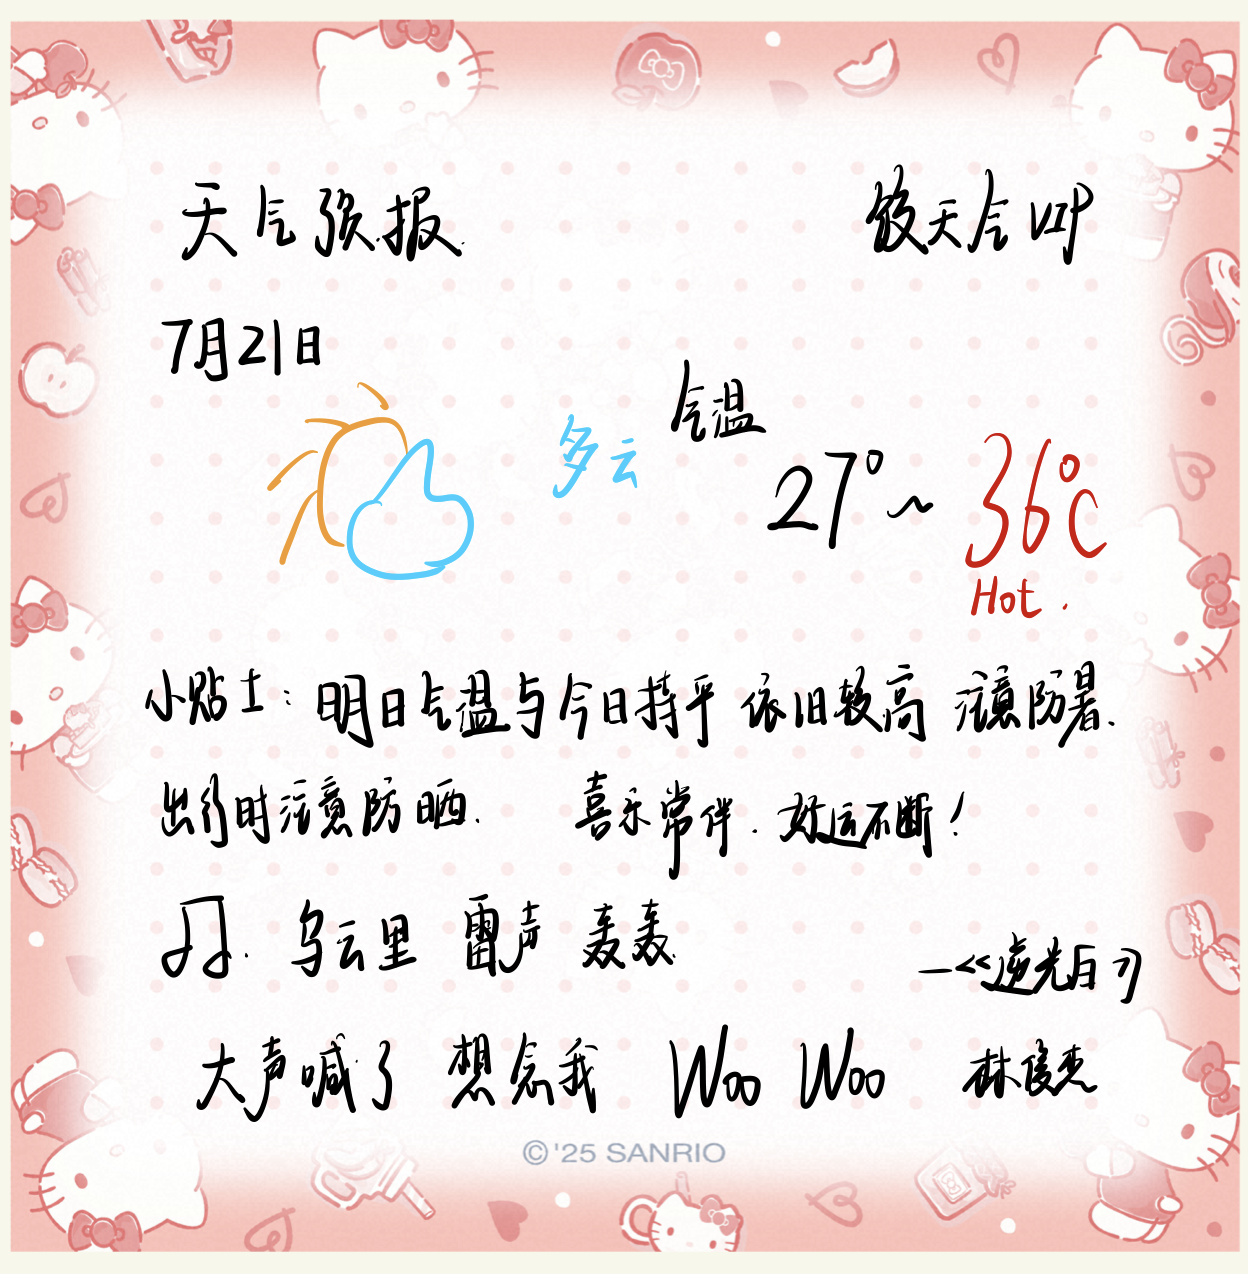 天气预报
放天气VIP
7月21日
多云
气温
27°~36℃
Hot.
小贴士：明日气温与今日持平 依旧较高 注意防暑.
出行时注意防晒. 喜乐常伴. 好运不断！
♫. 乌云里 雷声 轰轰
—<<逆光后
大声喊了 想念我 Woo Woo 林俊杰
©'25 SANRIO